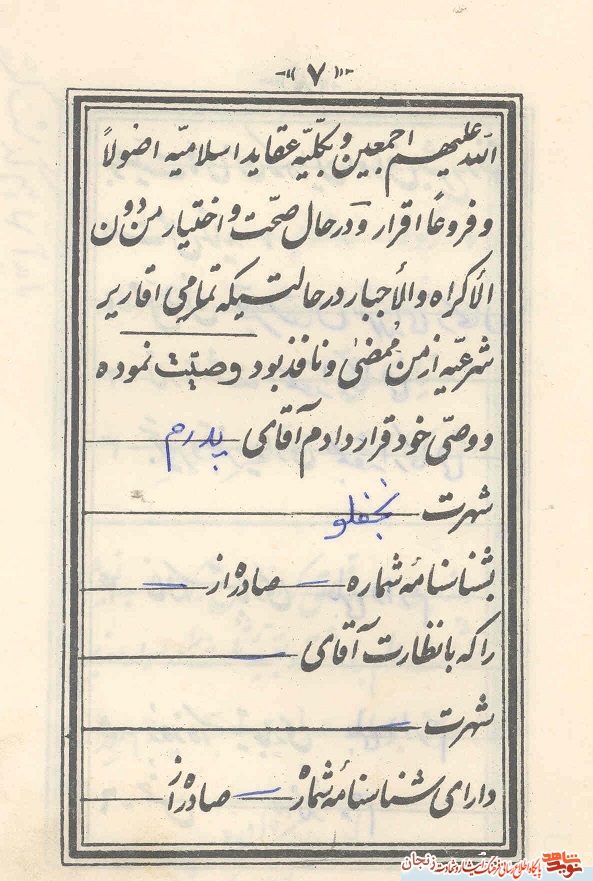 «۷»
الله علیهم اجمعین و بکلیّه عقاید اسلامیّه اصولاً
و فروعاً اقرار و در حال صحّت و اختیار من دون
الاکراه والأجبار در حالتیکه تمامی اقاریر
شرعیّه از من مُمضیٰ و نافذ بود وصیّت نموده
و وصّی خود قرار دادم آقای پدرم
شهرت نجفلو
بشناسنامهٔ شماره — صادره از —
را که با نظارت آقای —
شهرت —
دارای شناسنامهٔ شماره — صادره از
نوید شاهد پایگاه اطلاع رسانی فرهنگ ایثار و شهادت زنجان